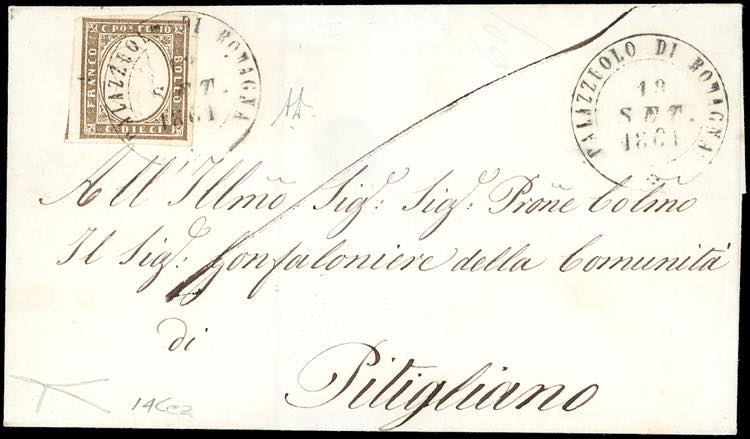 C. POSTE 10
FRANCO
BOLLO
C. DIECI
PALAZZUOLO DI ROMAGNA
SET.
1861
PALAZZUOLO DI ROMAGNA
18
SET.
1861
All' Illmo Sigr: Sigr: Prone Colmo
Il Sigr: Gonfaloniere della Comunità
di
Pitigliano
14Cez